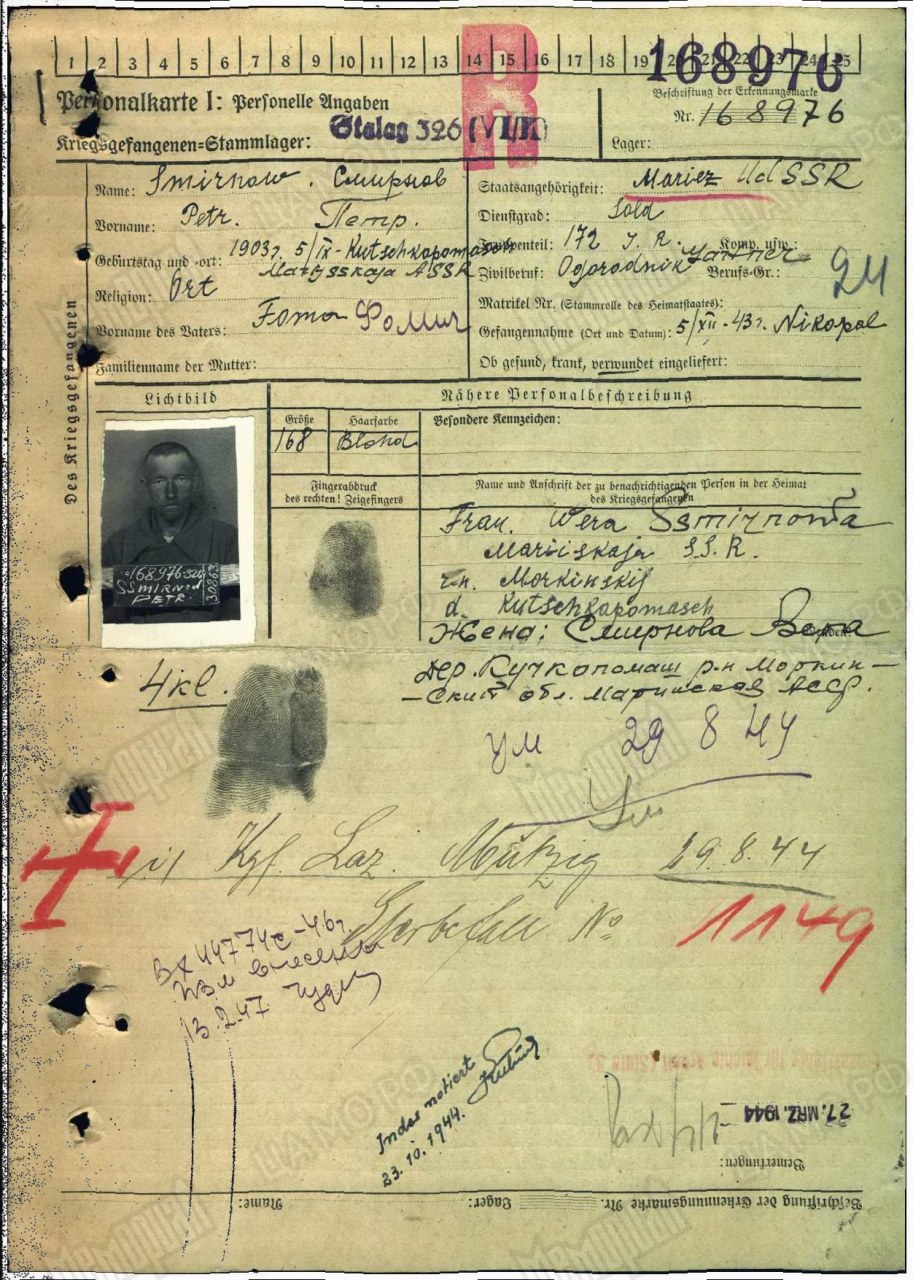 1 2 3 4 5 6 7 8 9 10 11 12 13 14 15 16 17 18 19 20 21 22 23 24 25
R
168976
Personalkarte I: Personelle Angaben
Beschriftung der Erkennungsmarke
Nr. 168976
Kriegsgefangenen=Stammlager: Stalag 326 (VI/K)
Lager:
Des Kriegsgefangenen
Name: Smirnow. Смирнов
Vorname: Petr. Петр.
Geburtstag und =ort: 1903г. 5/IX- Kutschkapomasch
Marijsskaja ASSR
Religion: Ort
Vorname des Vaters: Foma Фомич
Familienname der Mutter:
Staatsangehörigkeit: Mariez UdSSR
Dienstgrad: Sold
Truppenteil: 172 J.R. Komp. usw.:
Zivilberuf: Ogorodnik Gärtner Berufs=Gr.: 24
Matrikel Nr. (Stammrolle des Heimatstaates):
Gefangennahme (Ort und Datum): 5/XII-43г. Nikopol
Ob gesund, krank, verwundet eingeliefert:
Lichtbild
Nähere Personalbeschreibung
Größe
168
Haarfarbe
Blond
Besondere Kennzeichen:
168976-326
SSMIRNOW
PETR
Fingerabdruck
des rechten! Zeigefingers
Name und Anschrift der zu benachrichtigenden Person in der Heimat
des Kriegsgefangenen
Frau. Wera Ssmirnowa
Mariiskaja S.S.R.
r.n. Morkinskij
d. Kutschkapomasch
Жена: Смирнова Вера
Дер. Кучкопомаш р-н Моркин-
-ский обл. Марийская Асср.
4 kl.
ум 29 8 44
Ум
in Kgf. Laz. Mützig 29.8.44
Sterbefall No 1149
Вх 44774с-46г
13.2.47
Index notiert
23.10.1944.
27. MRZ. 1944
Bemerkungen:
Beschriftung der Erkennungsmarke Nr.
Lager:
Name: